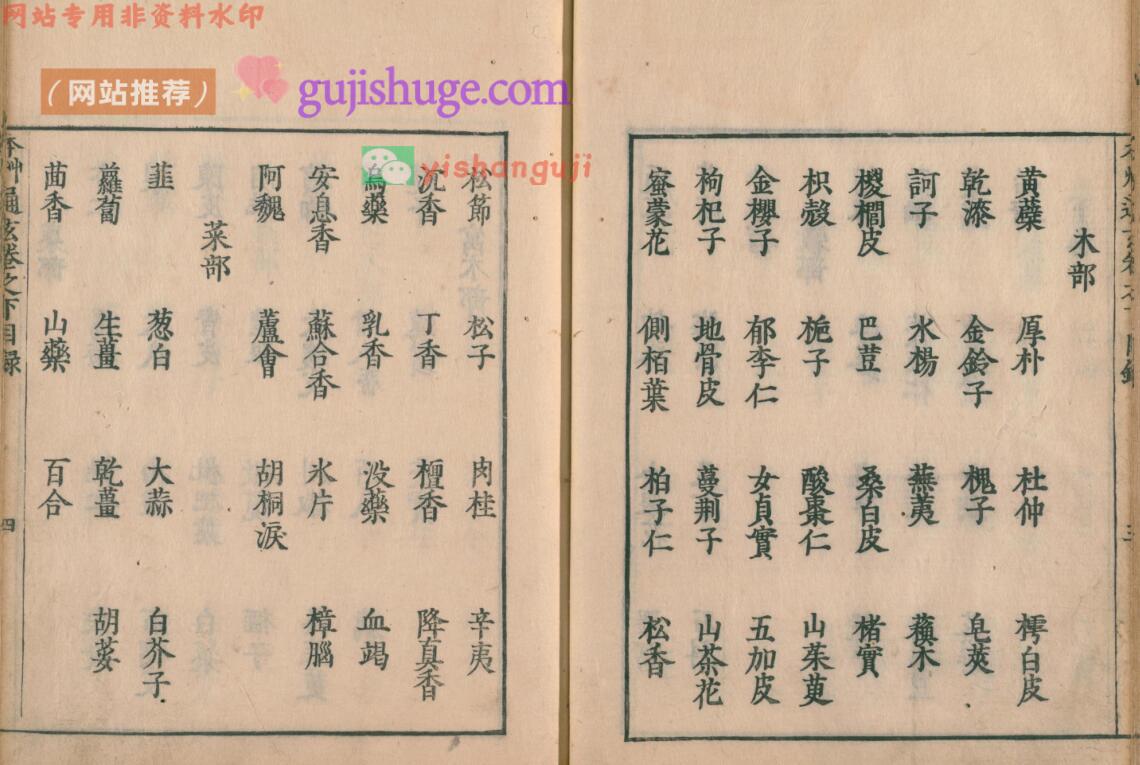 网站专用非资料水印
（网站推荐）
gujishuge.com
yishanguji
木部
黃蘗 厚朴 杜仲 樗白皮
乾漆 金鈴子 槐子 皂莢
訶子 水楊 蕪夷 蘋木
椶櫚皮 巴荳 桑白皮 楮實
枳殼 梔子 酸棗仁 山茱萸
金櫻子 郁李仁 女貞實 五加皮
枸杞子 地骨皮 蔓荆子 山茶花
蜜蒙花 側栢葉 柏子仁 松香
三
松節 松子 肉桂 辛夷
沉香 丁香 檀香 降真香
烏藥 乳香 没藥 血竭
安息香 蘇合香 氷片 樟腦
阿魏 蘆會 胡桐淚
菜部
韭 葱白 大蒜 白芥子
蘿蔔 生薑 乾薑 胡荽
茴香 山藥 百合
本艸通玄卷之下目録
四